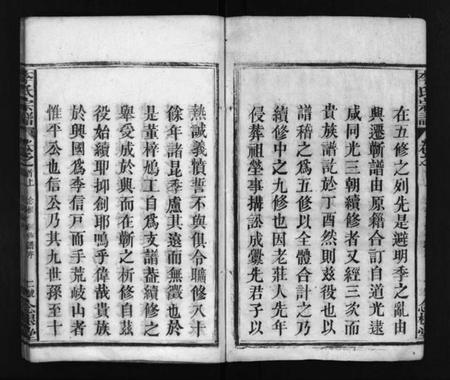 在五修之列先是避明季之亂由
興遷蘄譜由原籍合訂自道光遠
咸同光三朝續修者又經三次而
貴族譜説於丁酉然則茲役也以
譜稽之爲五修以全體合計之乃
續修中之九修也因老莊人先年
侵葬祖塋事搆訟成釁先君子以
李氏宗譜
熱誠義憤誓不與俱令曠修八十
餘年諸昆季慮其遠而無徵也於
是董梓鳩工自爲支譜葢續修之
舉受成於興而在蘄之析修自茲
役始續耶抑創耶嗚乎偉哉貴族
於興國爲李信戸而手荒岐山者
惟平公也信公乃其九世孫至十